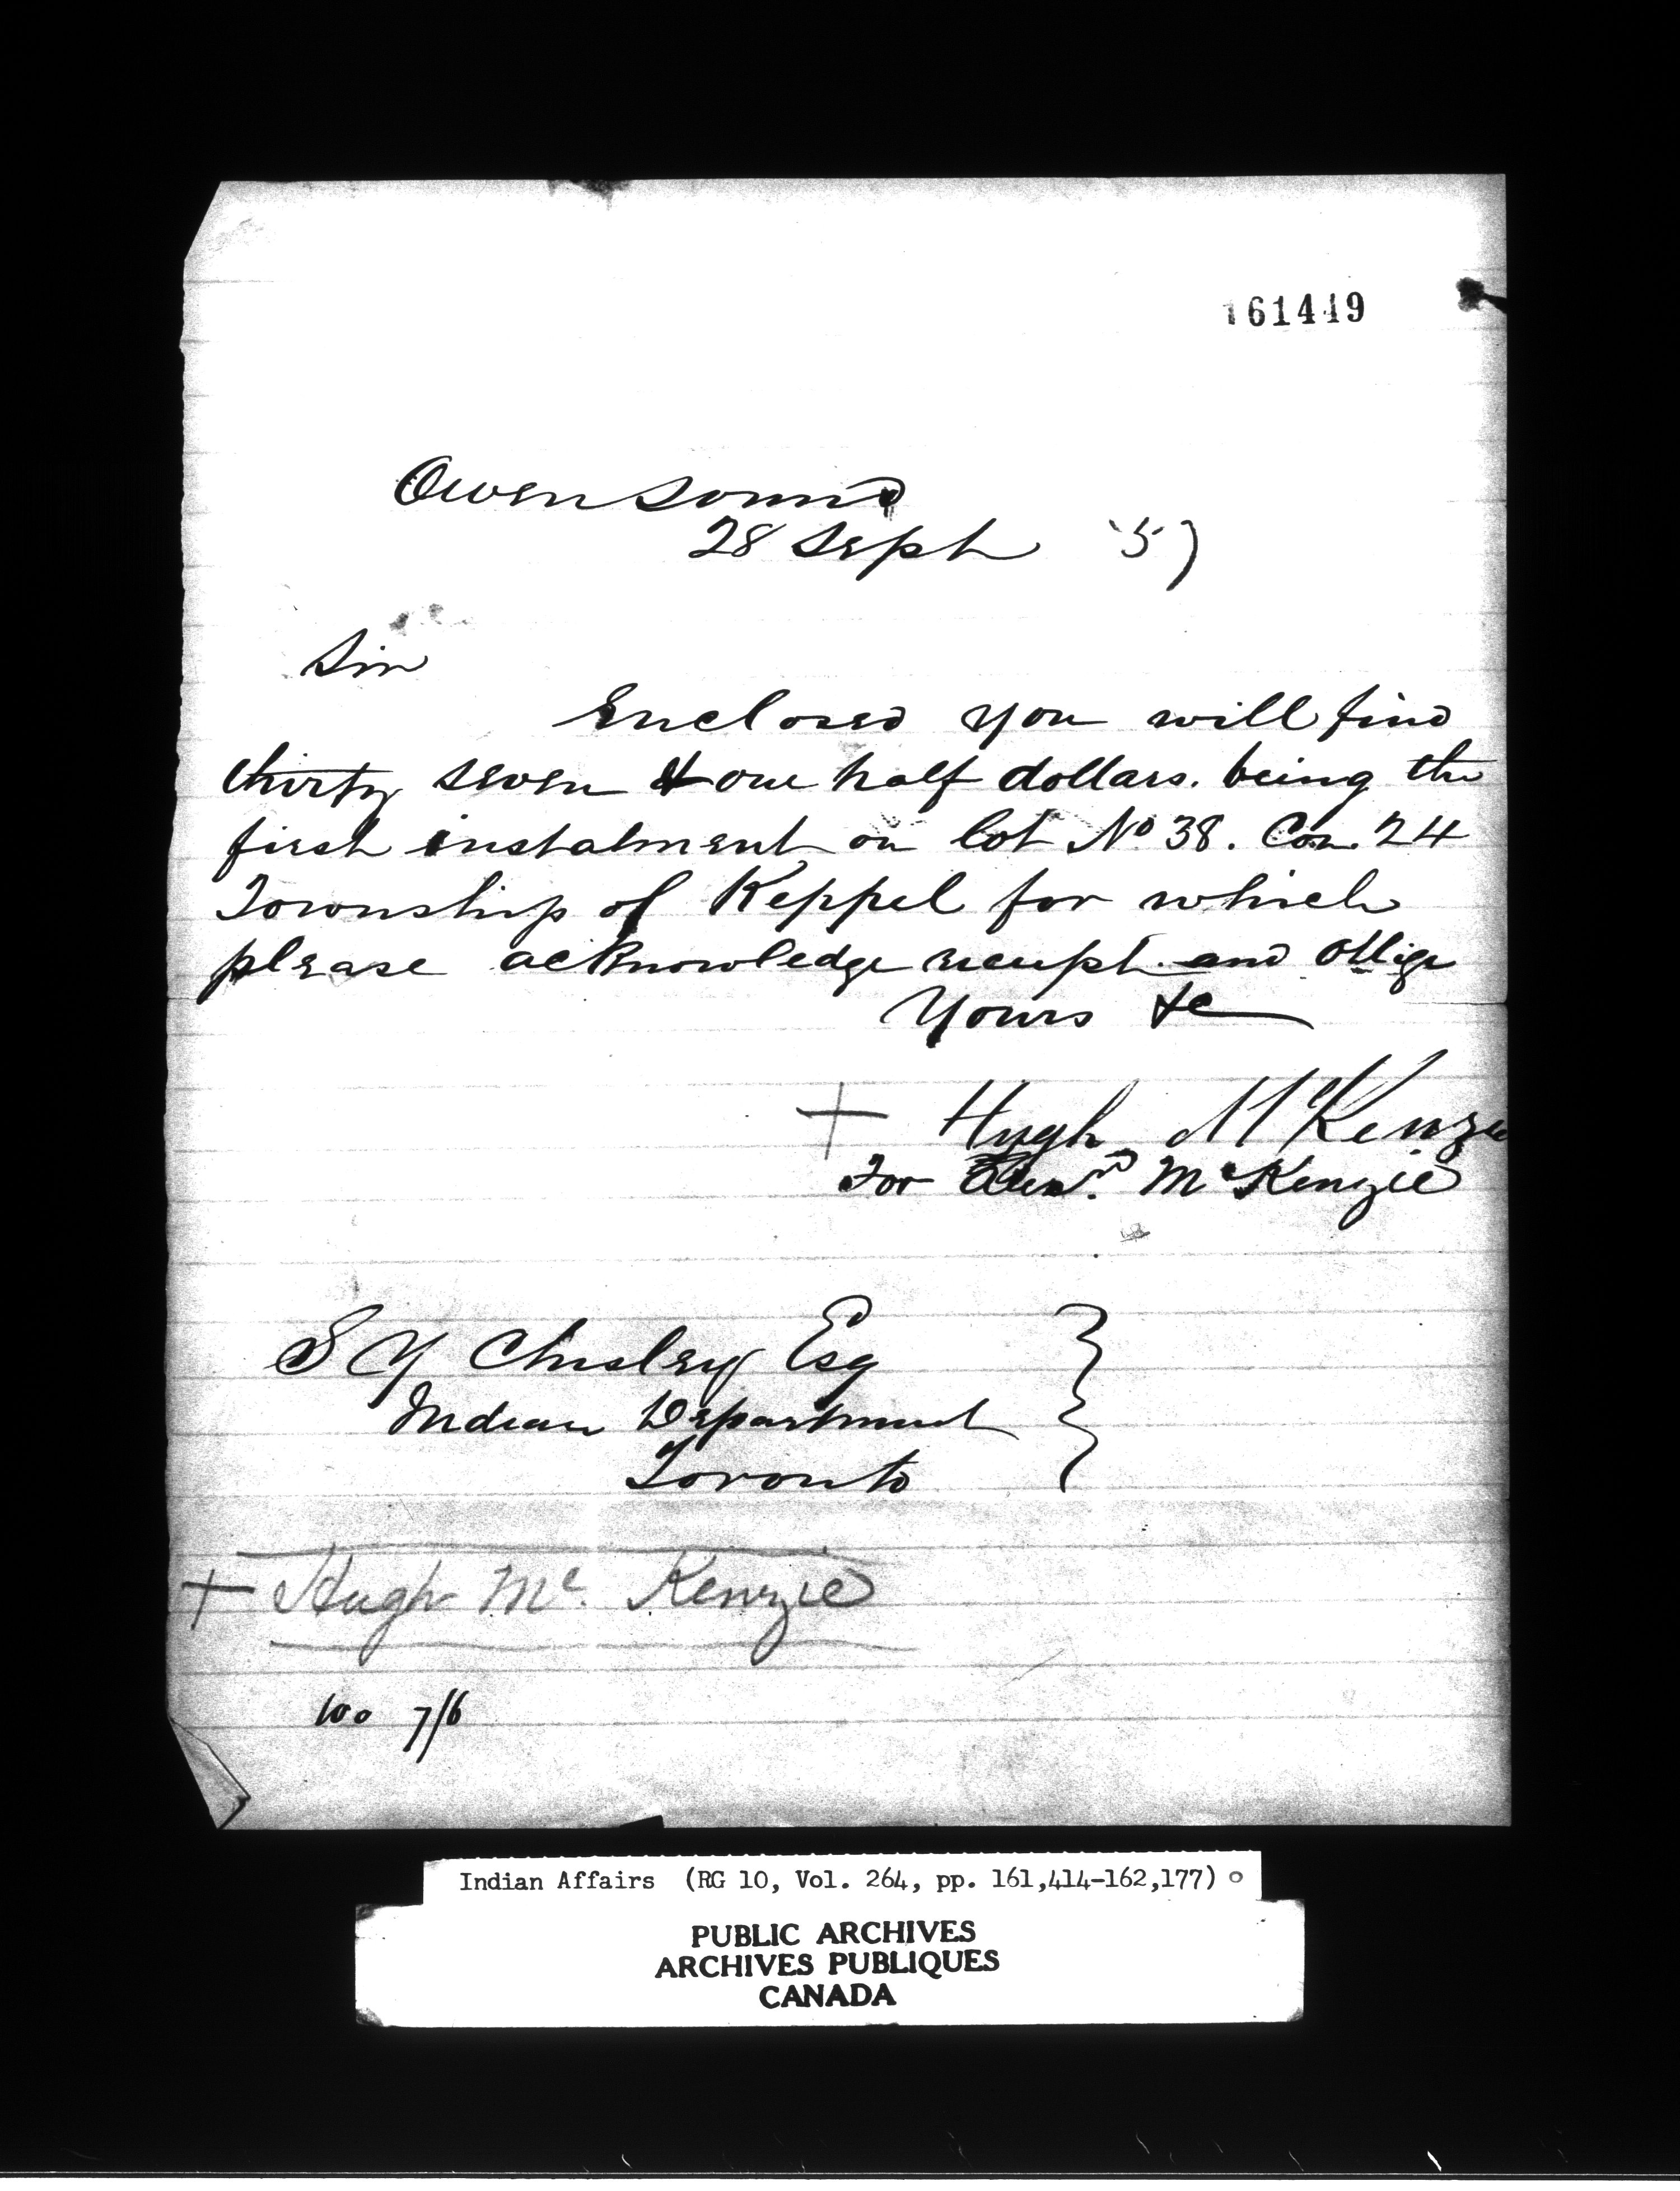 161449
Owen Sound
28 Sept '57
Sir
Enclosed you will find
thirty seven & one half dollars. being the
first instalment on lot No 38. Con. 24
Township of Keppel for which
please acknowledge receipt and oblige
Yours &c
+ Hugh McKenzie
For McKenzie
S Y Chesley Esq
Indian Department
Toronto
+ Hugh Mc. Kenzie
100 7/6
Indian Affairs (RG 10, Vol. 264, pp. 161,414-162,177)
PUBLIC ARCHIVES
ARCHIVES PUBLIQUES
CANADA